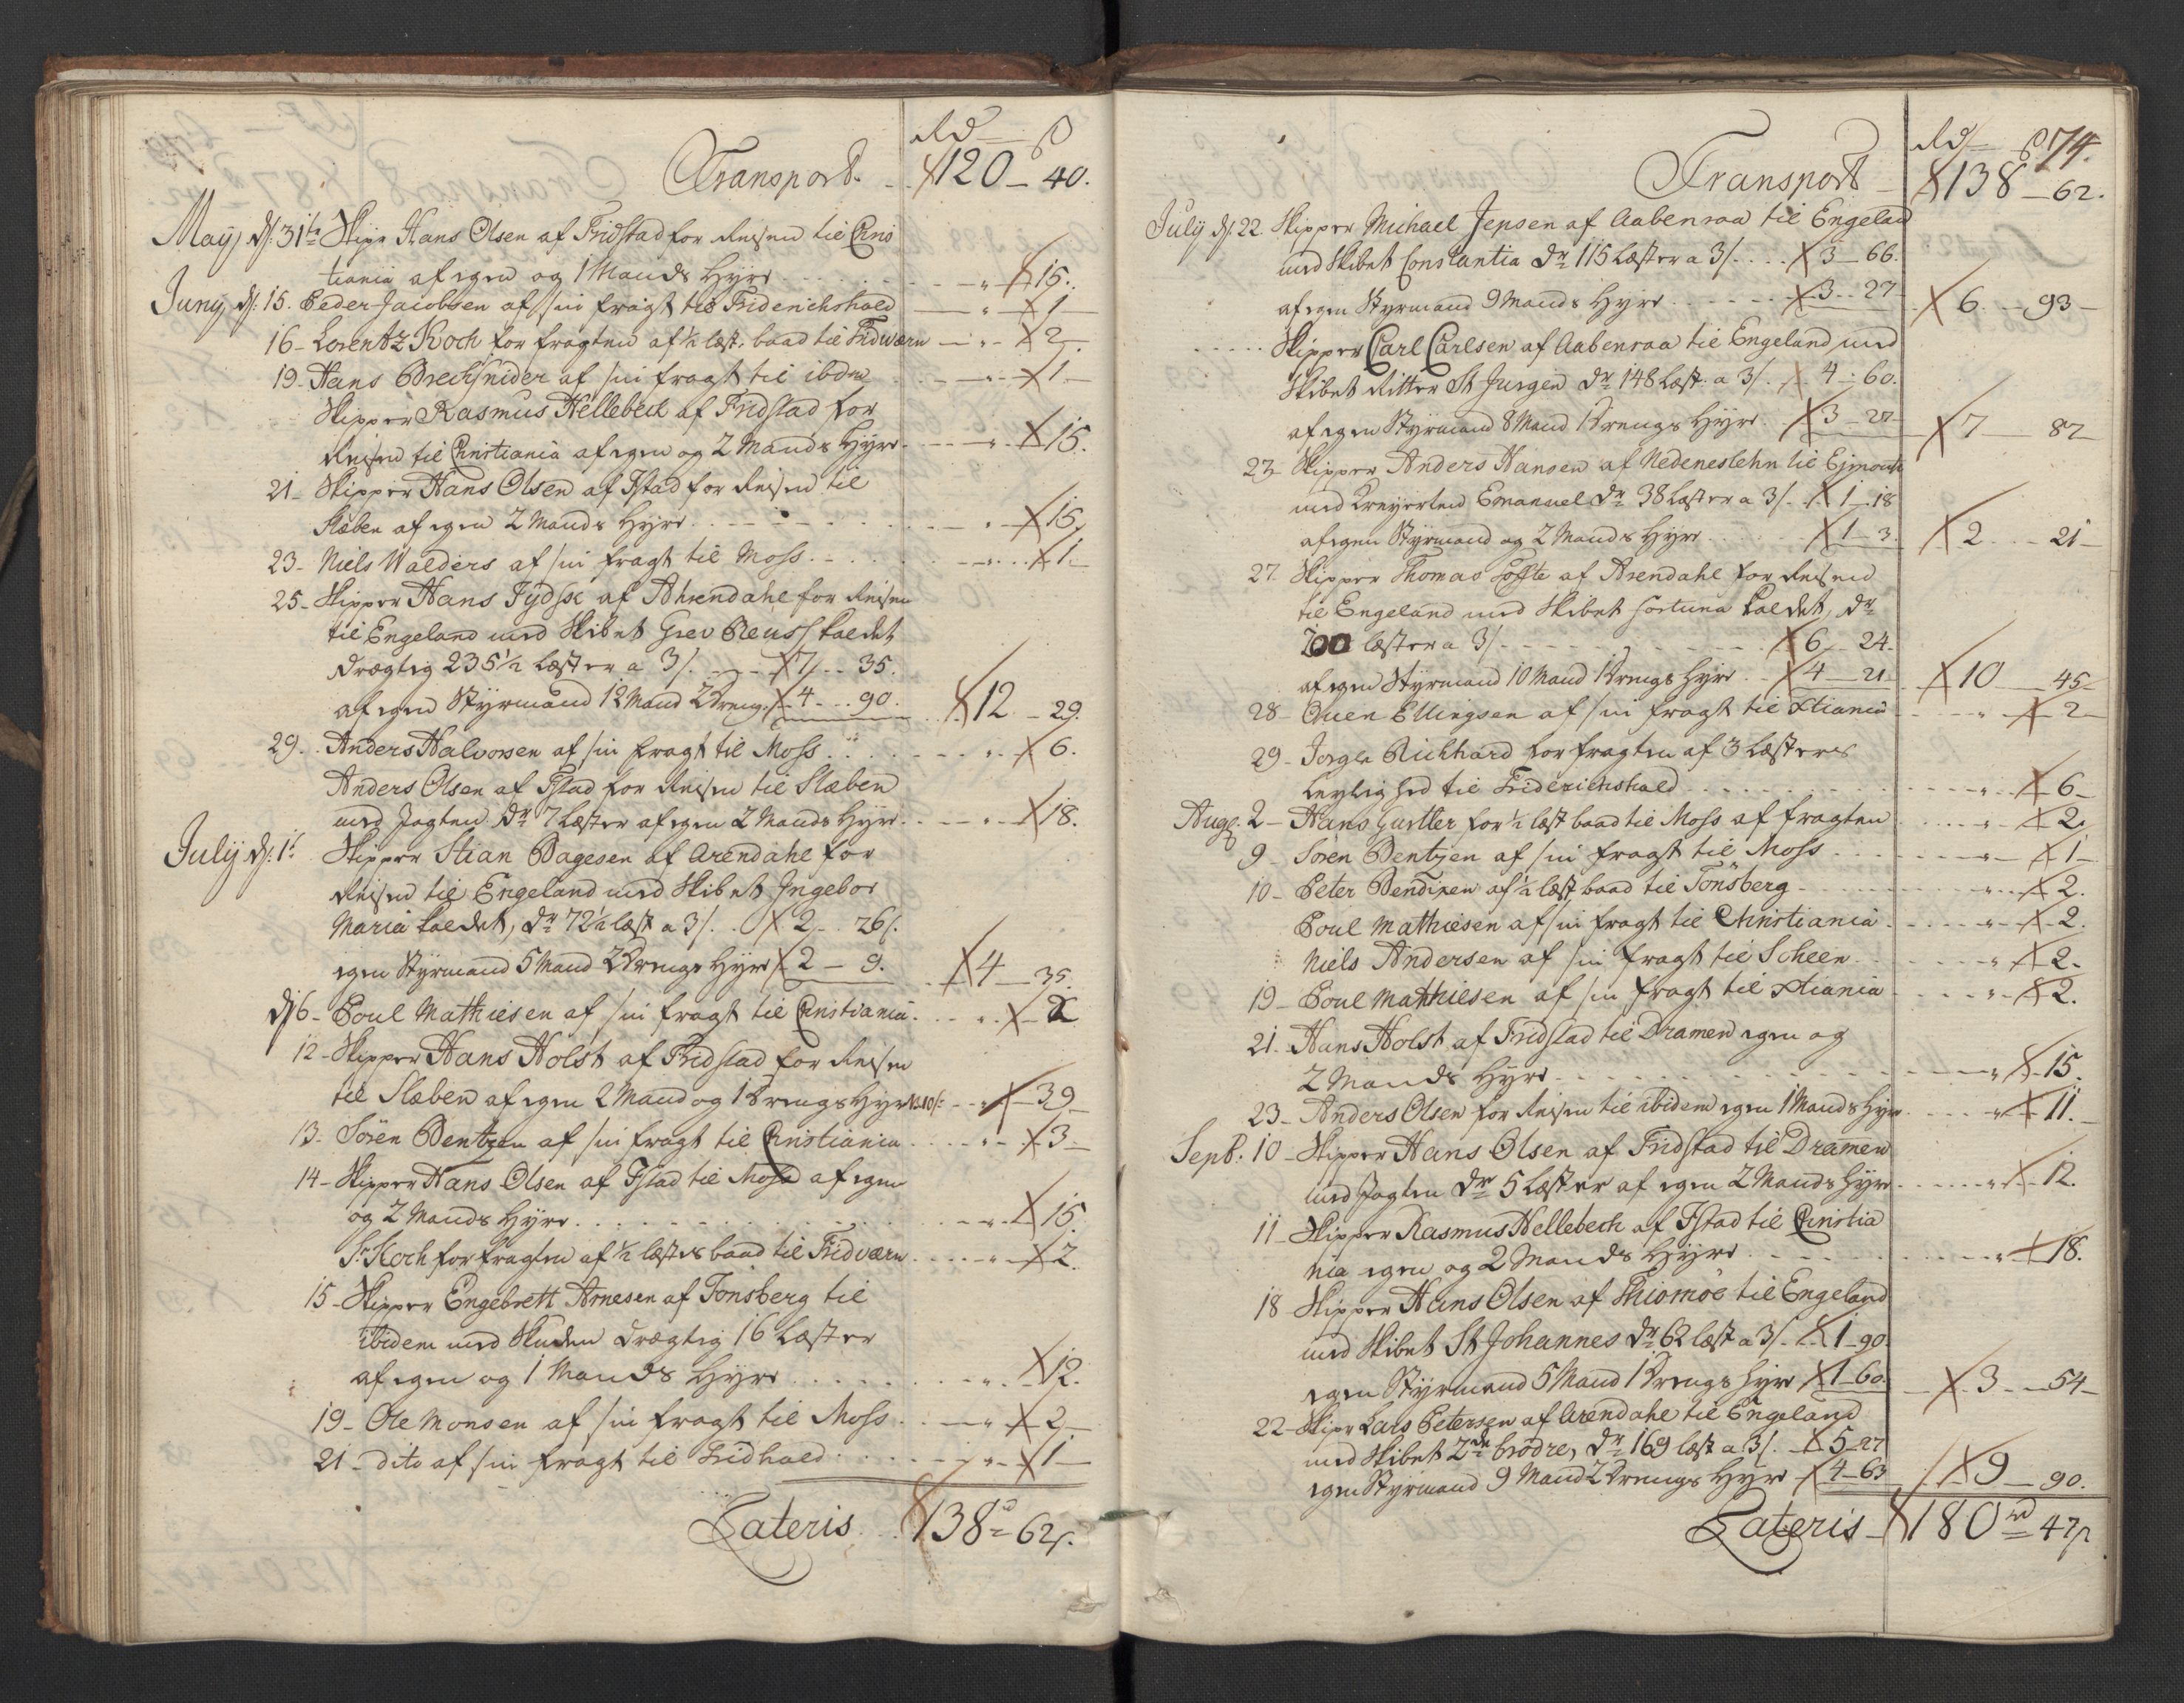 Rd ß
Transport. 120 - 40.
Maÿ d: 31te Skipr Hans Olsen af Fridstad for Reisen til Chris
tiania af egen og 1 Mands Hÿre " 15.
Junÿ d: 15. Peder Jacobsen af sin fragt til Friderichshald " 1
16 - Lorentz Koch for fragten af ½ læst. baad til Fridværn " 2.
19 - Hans Brechsnider af sin fragt til ibdm " 1
Skipper Rasmus Hellebech af Fridstad for
Reisen til Christiania af egen og 2 Mands Hÿre. " 15.
21 - Skipper Hans Olsen af Fstad for Reisen til
Slæben af egen 2 Mands Hÿre " 15,
23 - Niels Walders af sin fragt til Moss " 1
25 - Skipper Hans Jÿdsse af Ahrendahl for Reisen
til Engeland med Skibet Grev Reuss kaldet
drægtig 235½ Læster a 3/. 7 - 35.
af egen Stÿrmand 12 Mand 2 dreng. 4 - 90. 12 - 29.
29. Anders Halvorsen af sin fragt til Moss " 6.
Anders Olsen af Fstad for Reisen til Slæben
med Jagten dr 7 Læster af egen 2 Mands Hÿre. " 18.
Julÿ d: 1t Skipper Stian Bagesen af Arendahl for
Reisen til Engeland med Skibet Ingebor
Maria kaldet, dr 72½ læst a 3/. 2 - 26/.
egen Stÿrmand 5 Mand 2 drengs Hÿre 2 - 9. 4 - 35.
d: 6 - Poul Mathiesen af sin fragt til Christiania. " 2
12 - Skipper Hans Holst af Fridstad for Reisen
til Slæben af egen 2 Mand og 1 drengs Hÿre " 39
13 - Sören Bentzen af sin fragt til Christiania " 3
14 - Skipper Hans Olsen af Fstad til Moss af egen
og 2 Mands Hÿre " 15.
Sr. Koch for fragten af ½ læsters baad til Fridværn " 2.
15 - Skipper Engebrett Arnesen af Tonsberg til
ibidem med Skuden drægtig 16 Læster
af egen og 1 Mands Hÿre " 12.
19 - Ole Monsen af sin fragt til Moss " 2
21 - dito af sin fragt til Fridhald " 1
Lateris 138 rd - 62 ß.
74.
Rd ß
Transport 138 - 62.
Julÿ d: 22. Skipper Michael Jepsen af Aabenraa til Engeland
med Skibet Constantia dr 115 Læster a 3/. 3 - 66.
af egen Stÿrmand 9 Mands Hÿre 3 - 27 6 - 93
Skipper Carl Carlsen af Aabenraa til Engeland med
Skibet Ritter St Jurgen dr 148 Læst. a 3/. 4 - 60.
af egen Stÿrmand 8 Mand 1 drengs Hÿre 3 - 27 7 - 87
23 - Skipper Anders Hansen af Nedeneslehn til
med Kreyerten Emanuel dr 38 Læster a 3/. 1 - 18
af egen Stÿrmand og 2 Mands Hÿre 1 - 3. 2 - 21
27. Skipper Thomas Tofte af Arendahl for Reisen
til Engeland med Skibet Fortuna kaldet, dr
200 læster a 3/. 6 - 24.
af egen Stÿrmand 10 Mand 1 drengs Hÿre 4 - 21. 10 - 45
28 - Ouen Ellingsen af sin fragt til Xtiania " 2
29 - Richhard for fragten af 3 Læsters
Leylighed til Friderichshald " 6
Aug. 2 - Hans Gustler for ½ læst baad til Moss af fragten " 2.
9 - Soren Bentzen af sin fragt til Moss " 1
10 - Peter Bendixen af ½ læst, baad til Tönsberg " 2.
Poul Mathiesen af sin fragt til Christiania " 2.
Niels Andersen af sin fragt til Scheen " 2.
19 - Poul Mathiesen af sin fragt til Xtiania " 2.
21. - Hans Holst af Fridstad til Dramen egen og
2 Mands Hÿre " 15.
23 - Anders Olsen for Reisen til ibidem egen 1 Mands Hÿre " 11.
Sept: 10 - Skipper Hans Olsen af Fridstad til Dramen
med Jagten dr 5 Læster af egen 2 Mands Hÿre " 12.
11 - Skipper Rasmus Hellebech af Fstad til Christia
nia egen og 2 Mands Hÿre " 18.
18 Skipper Hans Olsen af Thiomöe til Engeland
med Skibet St Johannes dr 62 læst a 3/. 1 - 90.
egen Stÿrmand 5 Mand 1 drengs Hÿre 1 - 60. 3 - 54
22 - Skipr Lars Petersen af Arendahl til Engeland
med Skibet 2de brödre, dr 169 læst a 3/. 5 - 27
egen Stÿrmand 9 Mand 2 drengs Hÿre 4 - 63 9 - 90.
Lateris 180 rd - 47 ß